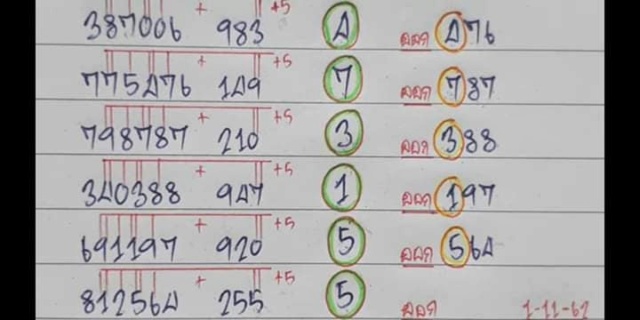 387006 + 983 +5 4 ออก 476
775476 + 149 +5 7 ออก 787
798787 + 210 +5 3 ออก 388
340388 + 947 +5 1 ออก 197
691197 + 920 +5 5 ออก 564
812564 + 255 +5 5 ออก 1-11-62